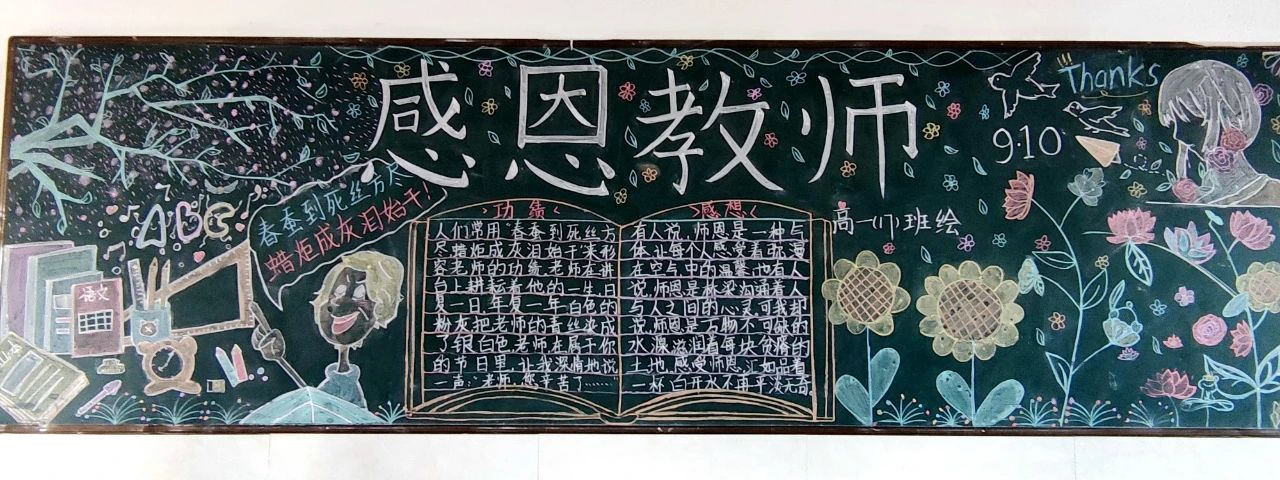 感恩教师
Thanks
9·10
ABC
春蚕到死丝方尽
蜡炬成灰泪始干!
语文
高一(1)班绘
功绩
人们常用"春蚕到死丝方
尽蜡炬成灰泪始干"来形
容老师的功绩,老师在讲
台上耕耘着他的一生,日
复一日,年复一年白色的
粉灰把老师的青丝染成
了银白色,老师在属于你
的节日里,让我深情地说
一声:"老师,您辛苦了……
感想
有人说,师恩是一种与
体,让每个人感受着弥漫
在空气中的温馨,也有人
说,师恩是桥梁沟通着人
与人之间的心灵,可我却
说,师恩是万物不可缺的
水源滋润着每块贫瘠的
土地,感受师恩,汇如品着
一杯白开水不再平淡无奇